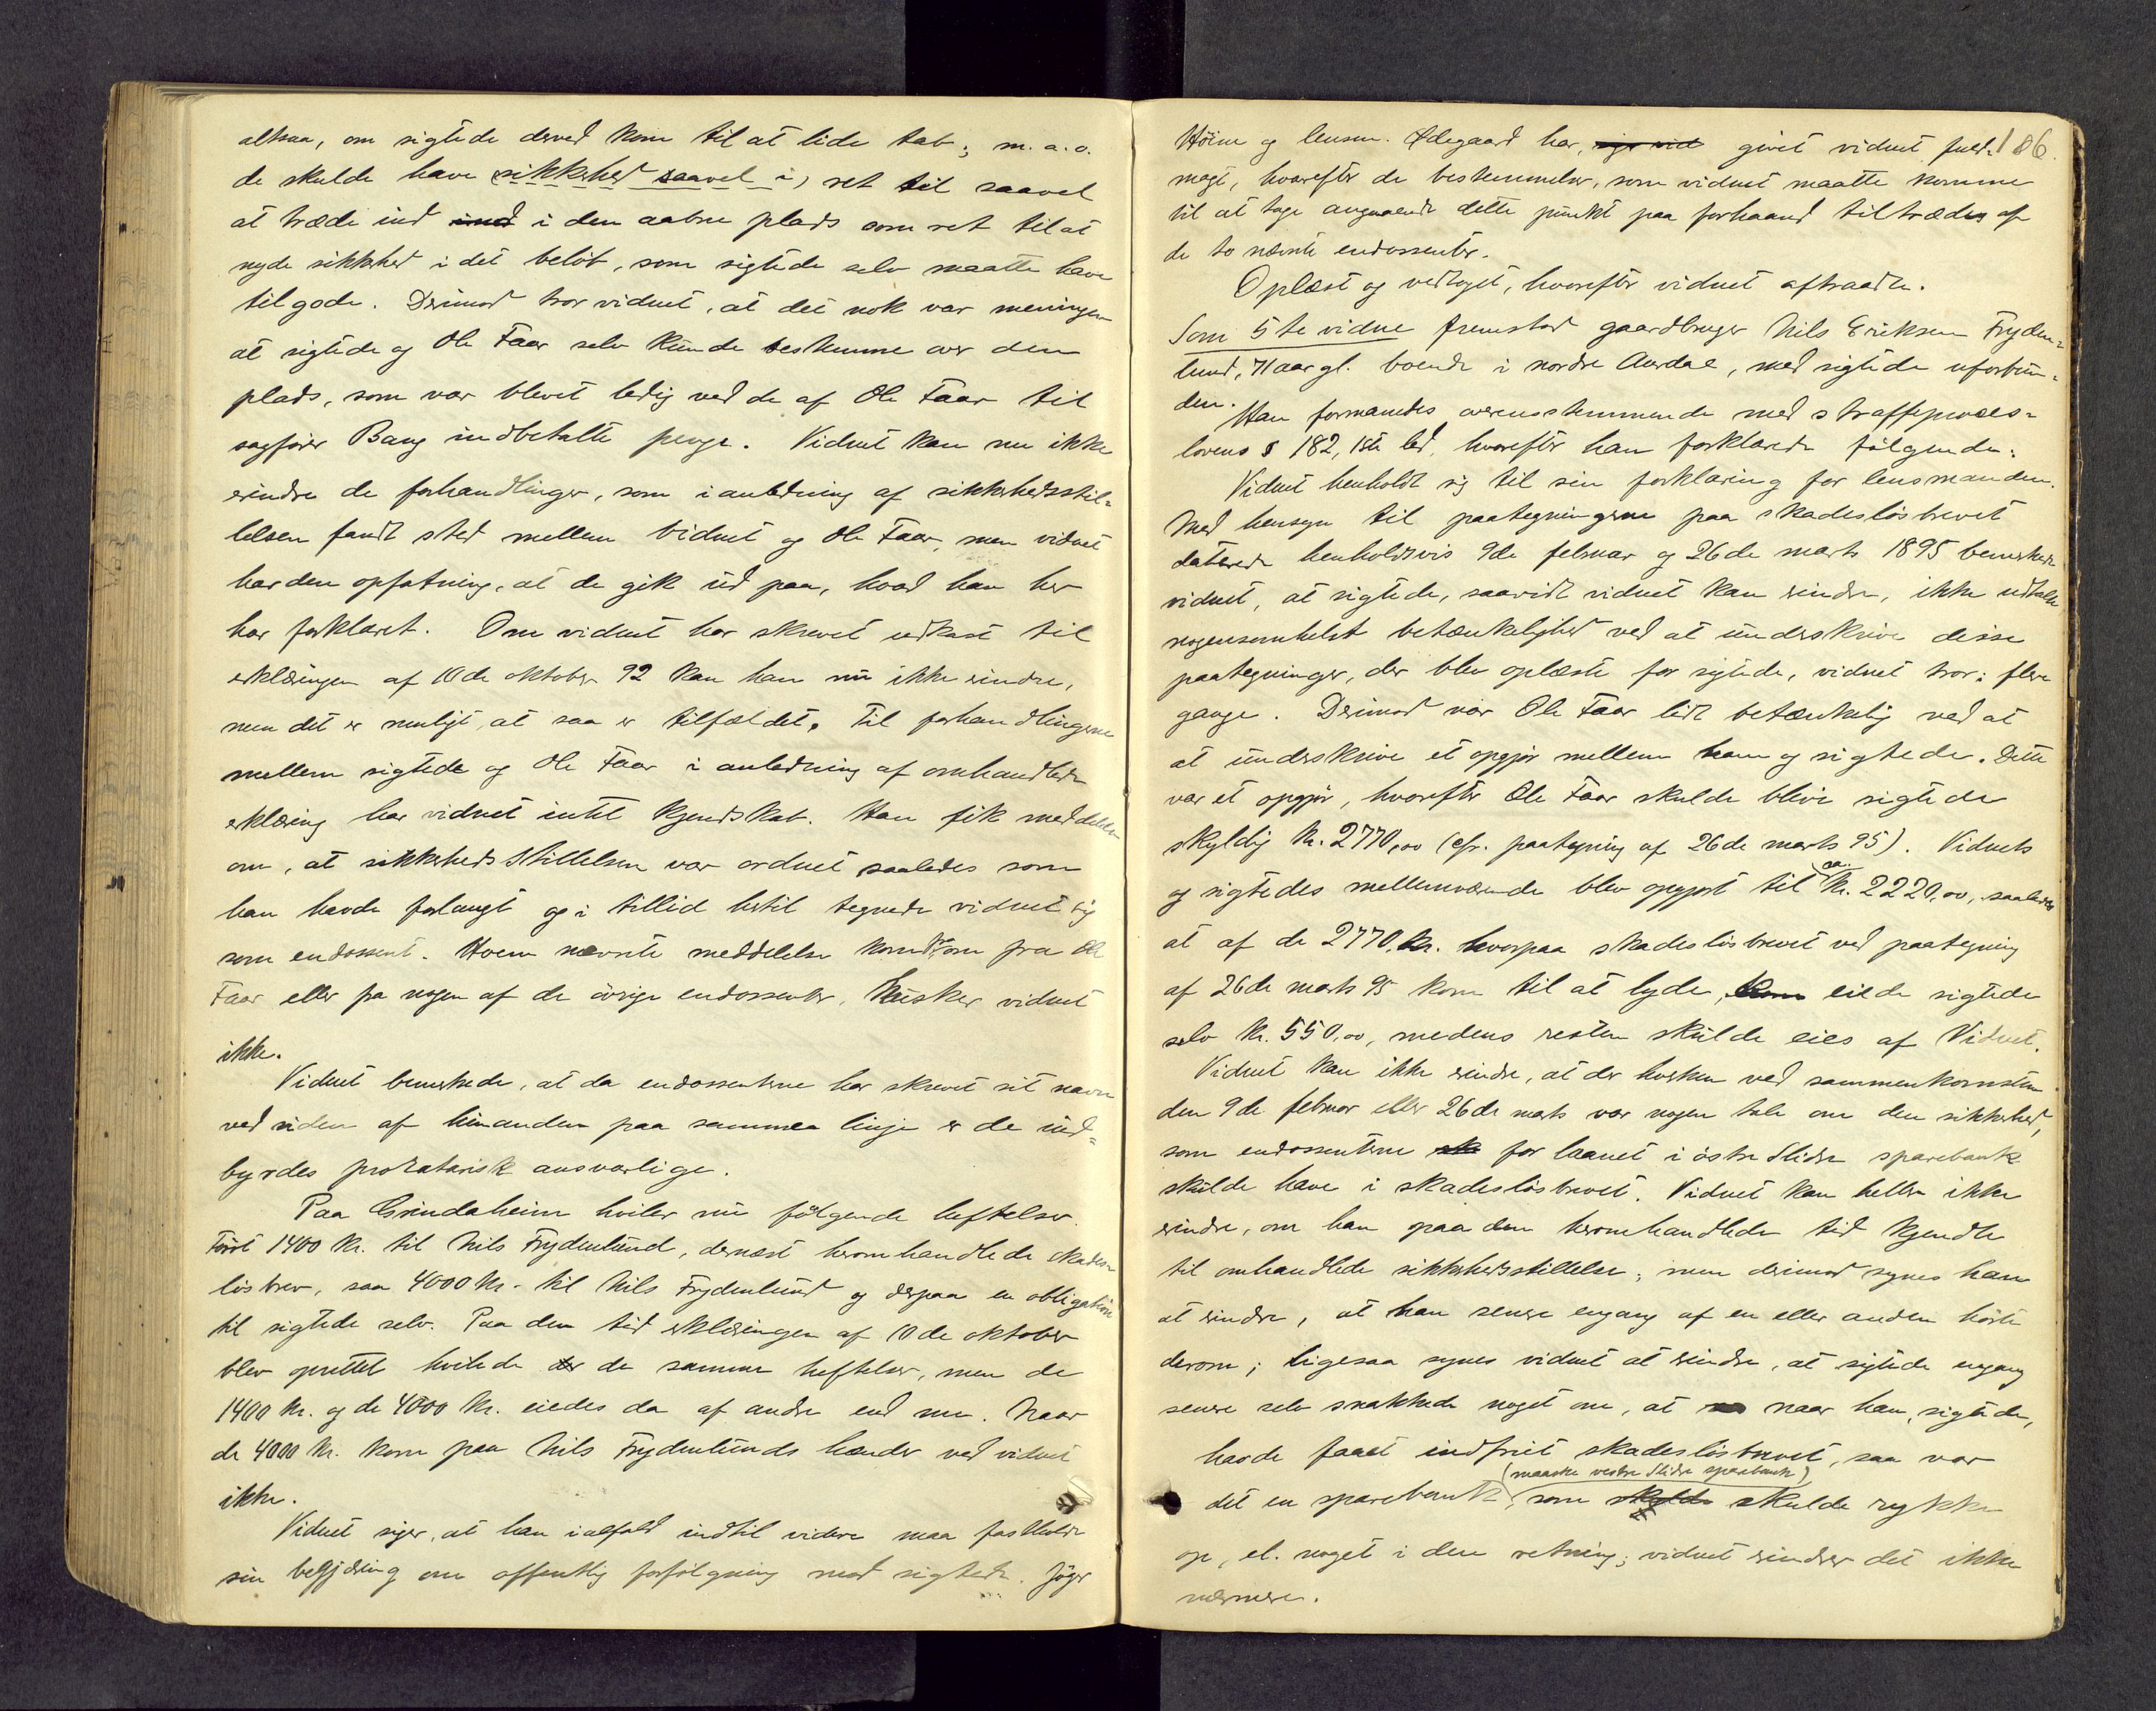 altsaa, om sigtede derved kom til at lide tab; m. a. o.
de skulde have (sikkerhed saavel i) ret til saavel
at træde ind ind i den aabne plads som ret til at
nyde sikkerhed i det beløb, som sigtede selv maatte have
tilgode. Derimod tror vidnet, at det nok var meningen
at sigtede og Ole Faar selv kunde bestemme over den
plads, som var blevet ledig ved de af Ole Faar til
sagfører Bang indbetalte penge. Vidnet kan nu ikke
erindre de forhandlinger, som i anledning af sikkerhedsstil-
lelsen fandt sted mellem vidnet og Ole Faar, men vidnet
har den opfatning, at de gik ud paa, hvad han her
har forklaret. Om vidnet har skrevet udkast til
erklæringen af 10de oktober 92 kan han nu ikke erindre,
men det er muligt, at saa er tilfældet. Til forhandlingerne
mellem sigtede og Ole Faar i anledning af omhandlede
erklæring har vidnet intet kjendskab. Han fik meddelelse
om, at sikkerhedsstillelsen var ordnet saaledes som
han havde forlangt og i tillid hertil tegnede vidnet sig
som endossent. Hvem nævnte meddelelse kom fra, om fra Ole
Faar eller fra nogen af de øvrige endossenter, husker vidnet
ikke.
Vidnet bemerkede, at da endossenterne har skrevet sit navn
ved siden af hinanden paa samme linje er de ind-
byrdes proratarisk ansvarlige.
Paa Grindaheim hviler nu følgende heftelser.
Først 1400 kr. til Nils Frydenlund, dernæst heromhandlede skades-
løsbrev, saa 4000 kr. til Nils Frydenlund og derpaa en obligation
til sigtede selv. Paa den tid erklæringen af 10de oktober
blev oprettet hvilede der de samme heftelser, men de
1400 kr. og de 4000 kr. eiedes da af andre end nu. Naar
de 4000 kr. kom paa Nils Frydenlunds hænder ved vidnet
ikke.
Vidnet siger, at han ialfald indtil videre maa fastholde
sin begjæring om offentlig forfølgning mod sigtede.
186.
Høine og lensm. Ødegaard har, givet vidnet fuld-
magt, hvorefter de bestemmelser, som vidnet maatte komme
til at tage angaaende dette punkt paa forhaand tiltrædes af
de to nævnte endossenter.
Oplæst og vedtaget, hvorefter vidnet aftraadte.
Som 5te vidne fremstod gaardbruger Nils Eriksen Fryden-
lund, 71 aar gl. boende i nordre Aurdal, med sigtede uforbun-
den.
Han formanedes overensstemmende med straffeproces-
lovens § 182, 1ste led, hvorefter han forklarede følgende:
Vidnet henholdt sig til sin forklaring for lensmanden.
Med hensyn til paategningerne paa skadesløsbrevet
daterede henholdsvis 9de februar og 26de marts 1895 bemerkede
vidnet, at sigtede, saavidt vidnet kan erindre, ikke udtalte
nogensomhelst betænkelighed ved at underskrive disse
paategninger, der blev oplæste for sigtede, vidnet tror: flere
gange. Derimod var Ole Faar lidt betænkelig ved at
at underskrive et opgjør mellem ham og sigtede. Dette
var et opgjør, hvorefter Ole Faar skulde blive sigtede
skyldig kr. 2770,00 (cfr. paategning af 26de marts 95). Vidnets
og sigtedes mellemværende blev opgjort til ca. kr. 2220,00, saaledes
at af de 2770 kr. hvorpaa skadesløsbrevet ved paategning
af 26de marts 95 kom til at lyde, kom eiede sigtede
selv kr. 550,00, medens resten skulde eies af Vidnet.
Vidnet kan ikke erindre, at der hverken ved sammenkomsten
den 9de februar eller 26de marts var nogen tale om den sikkerhed,
som endossenterne sk for laanet i østre Slidre sparebank
skulde have i skadesløsbrevet. Vidnet kan heller ikke
erindre, om han paa den heromhandlede tid kjendte
til omhandlede sikkerhedsstillelse; men derimod synes han
at erindre, at han senere engang af en eller anden hørte
derom; ligesaa synes vidnet at erindre, at sigtede engang
senere selv snakkede noget om, at naar han, sigtede,
havde faaet indfriet skadesløsbrevet, saa var
(maaske vestre Slidre sparebank)
det en sparebank, som skulde skulde rykke
op, el. noget i den retning; vidnet erindrer det ikke
nærmere.